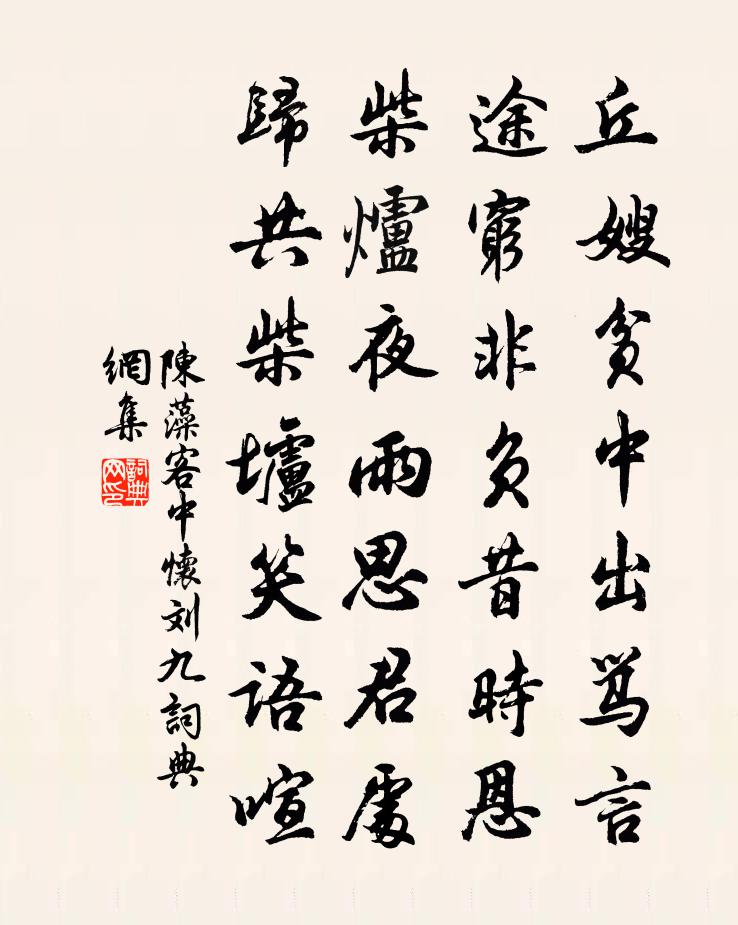 丘嫂貧中出骂言
途窮非负昔時恩
柴爐夜雨思君處
歸共柴壚笑语喧
陳藻客中懷刘九詞典
網集
詞典
网印